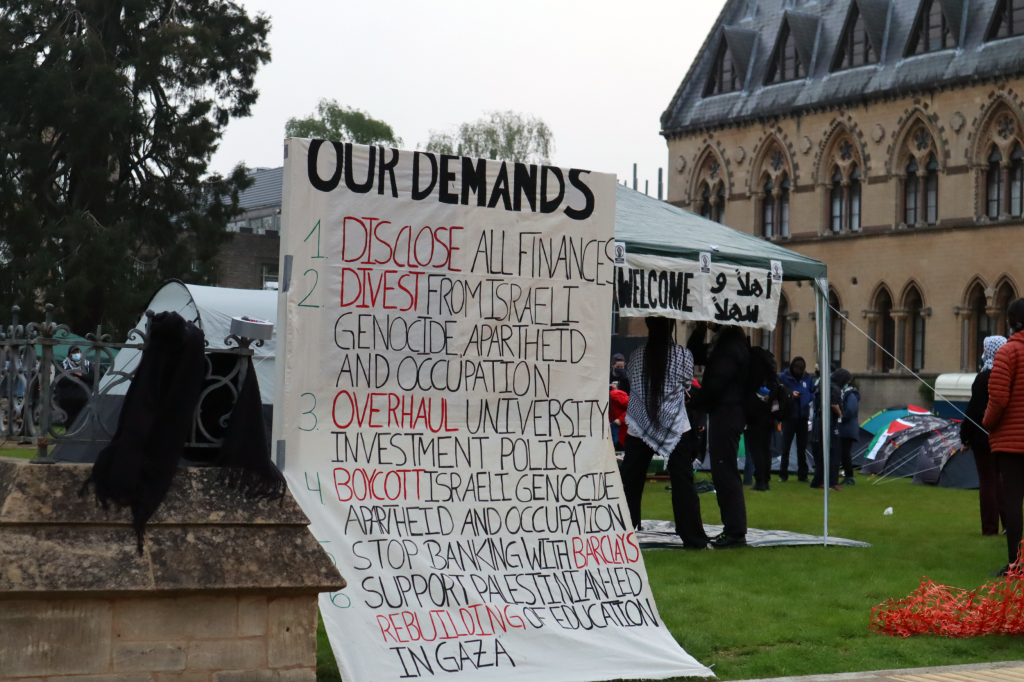 OUR DEMANDS
1. DISCLOSE ALL FINANCES
2. DIVEST FROM ISRAELI
GENOCIDE, APARTHEID
AND OCCUPATION
3. OVERHAUL UNIVERSITY
INVESTMENT POLICY
4 BOYCOTT ISRAELI GENOCIDE
APARTHEID AND OCCUPATION
5 STOP BANKING WITH BARCLAYS
6 SUPPORT PALESTINIAN-LED
REBUILDING OF EDUCATION
IN GAZA
WELCOME
أهلاً و
سهلاً